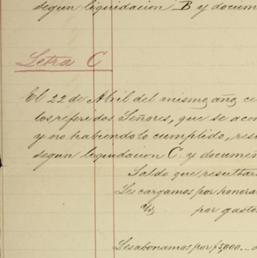 segun liquidacion B y docume
Letra C
El 22 de Abril del mismo año ce
los referidos Señores, que se acom
y no habiendolo cumplido, res
segun liquidacion C. y documen
Saldo que resultar
Les cargamos por honora
por gasto
Les abonamos por 5000.-